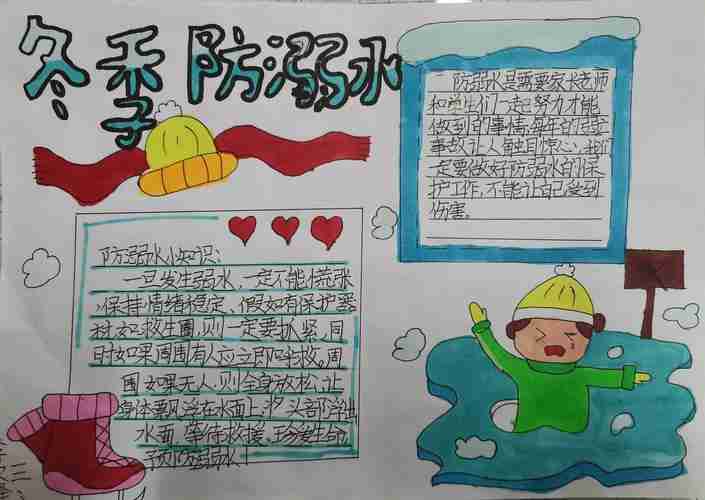 冬季防溺水
防溺水是需要家长老师
和学生们一起努力才能
做到的事情,每年的溺亡
事故让人触目惊心,我们
一定要做好防溺水的保
护工作,不能让自己受到
伤害。
防溺水小知识:
一旦发生溺水,一定不能慌张
,保持情绪稳定、假如有保护器
材如:救生圈,则一定要抓紧,同
时如果周围有人应立即呼救。周
围如果无人,则全身放松,让
身体漂浮在水面上,将头部浮出
水面,等待救援,珍爱生命,
预防溺水